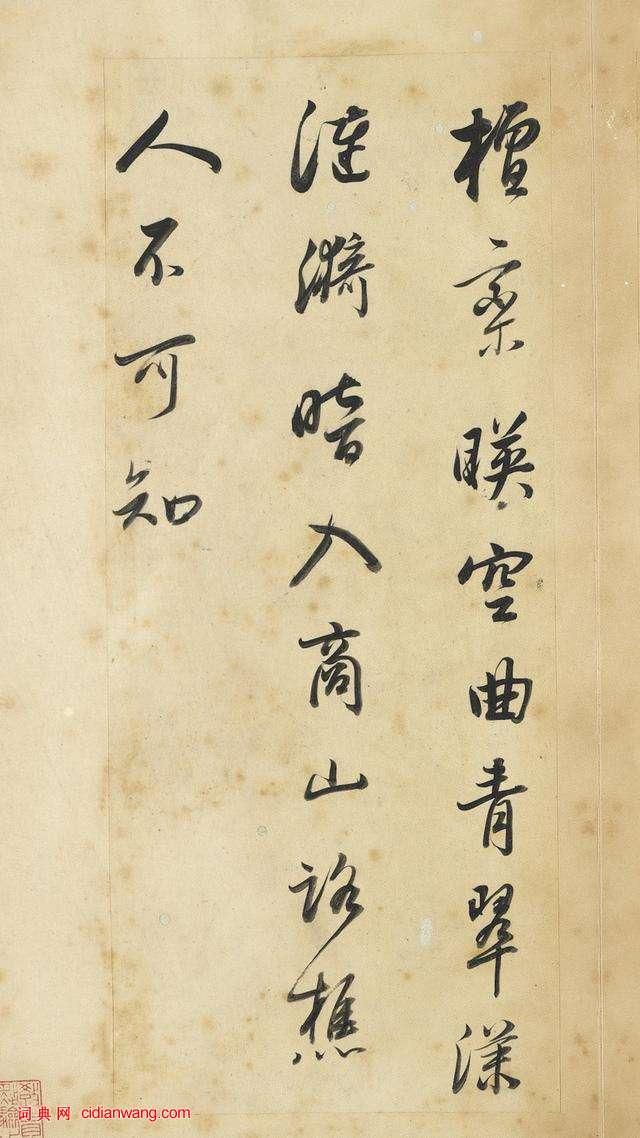 檀欒暎空曲青翠漾
漣漪暗入商山路樵
人不可知
词典网 cidianwang.com